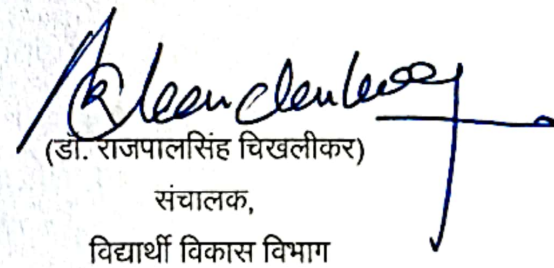 (डॉ. राजपालसिंह चिखलीकर)
संचालक,
विद्यार्थी विकास विभाग